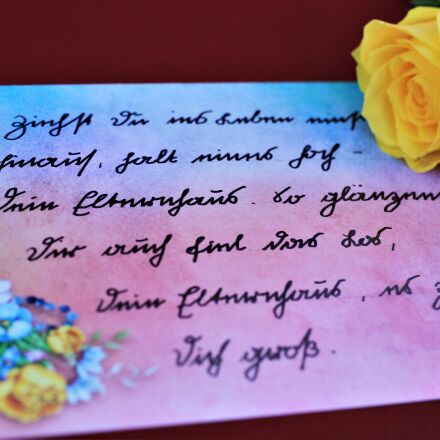 Ziehst Du ins Leben einst
hinaus, halt eines hoch -
Dein Elternhaus. So glänzend
Dir auch fiel das Los,
Dein Elternhaus, es z
Dich groß.